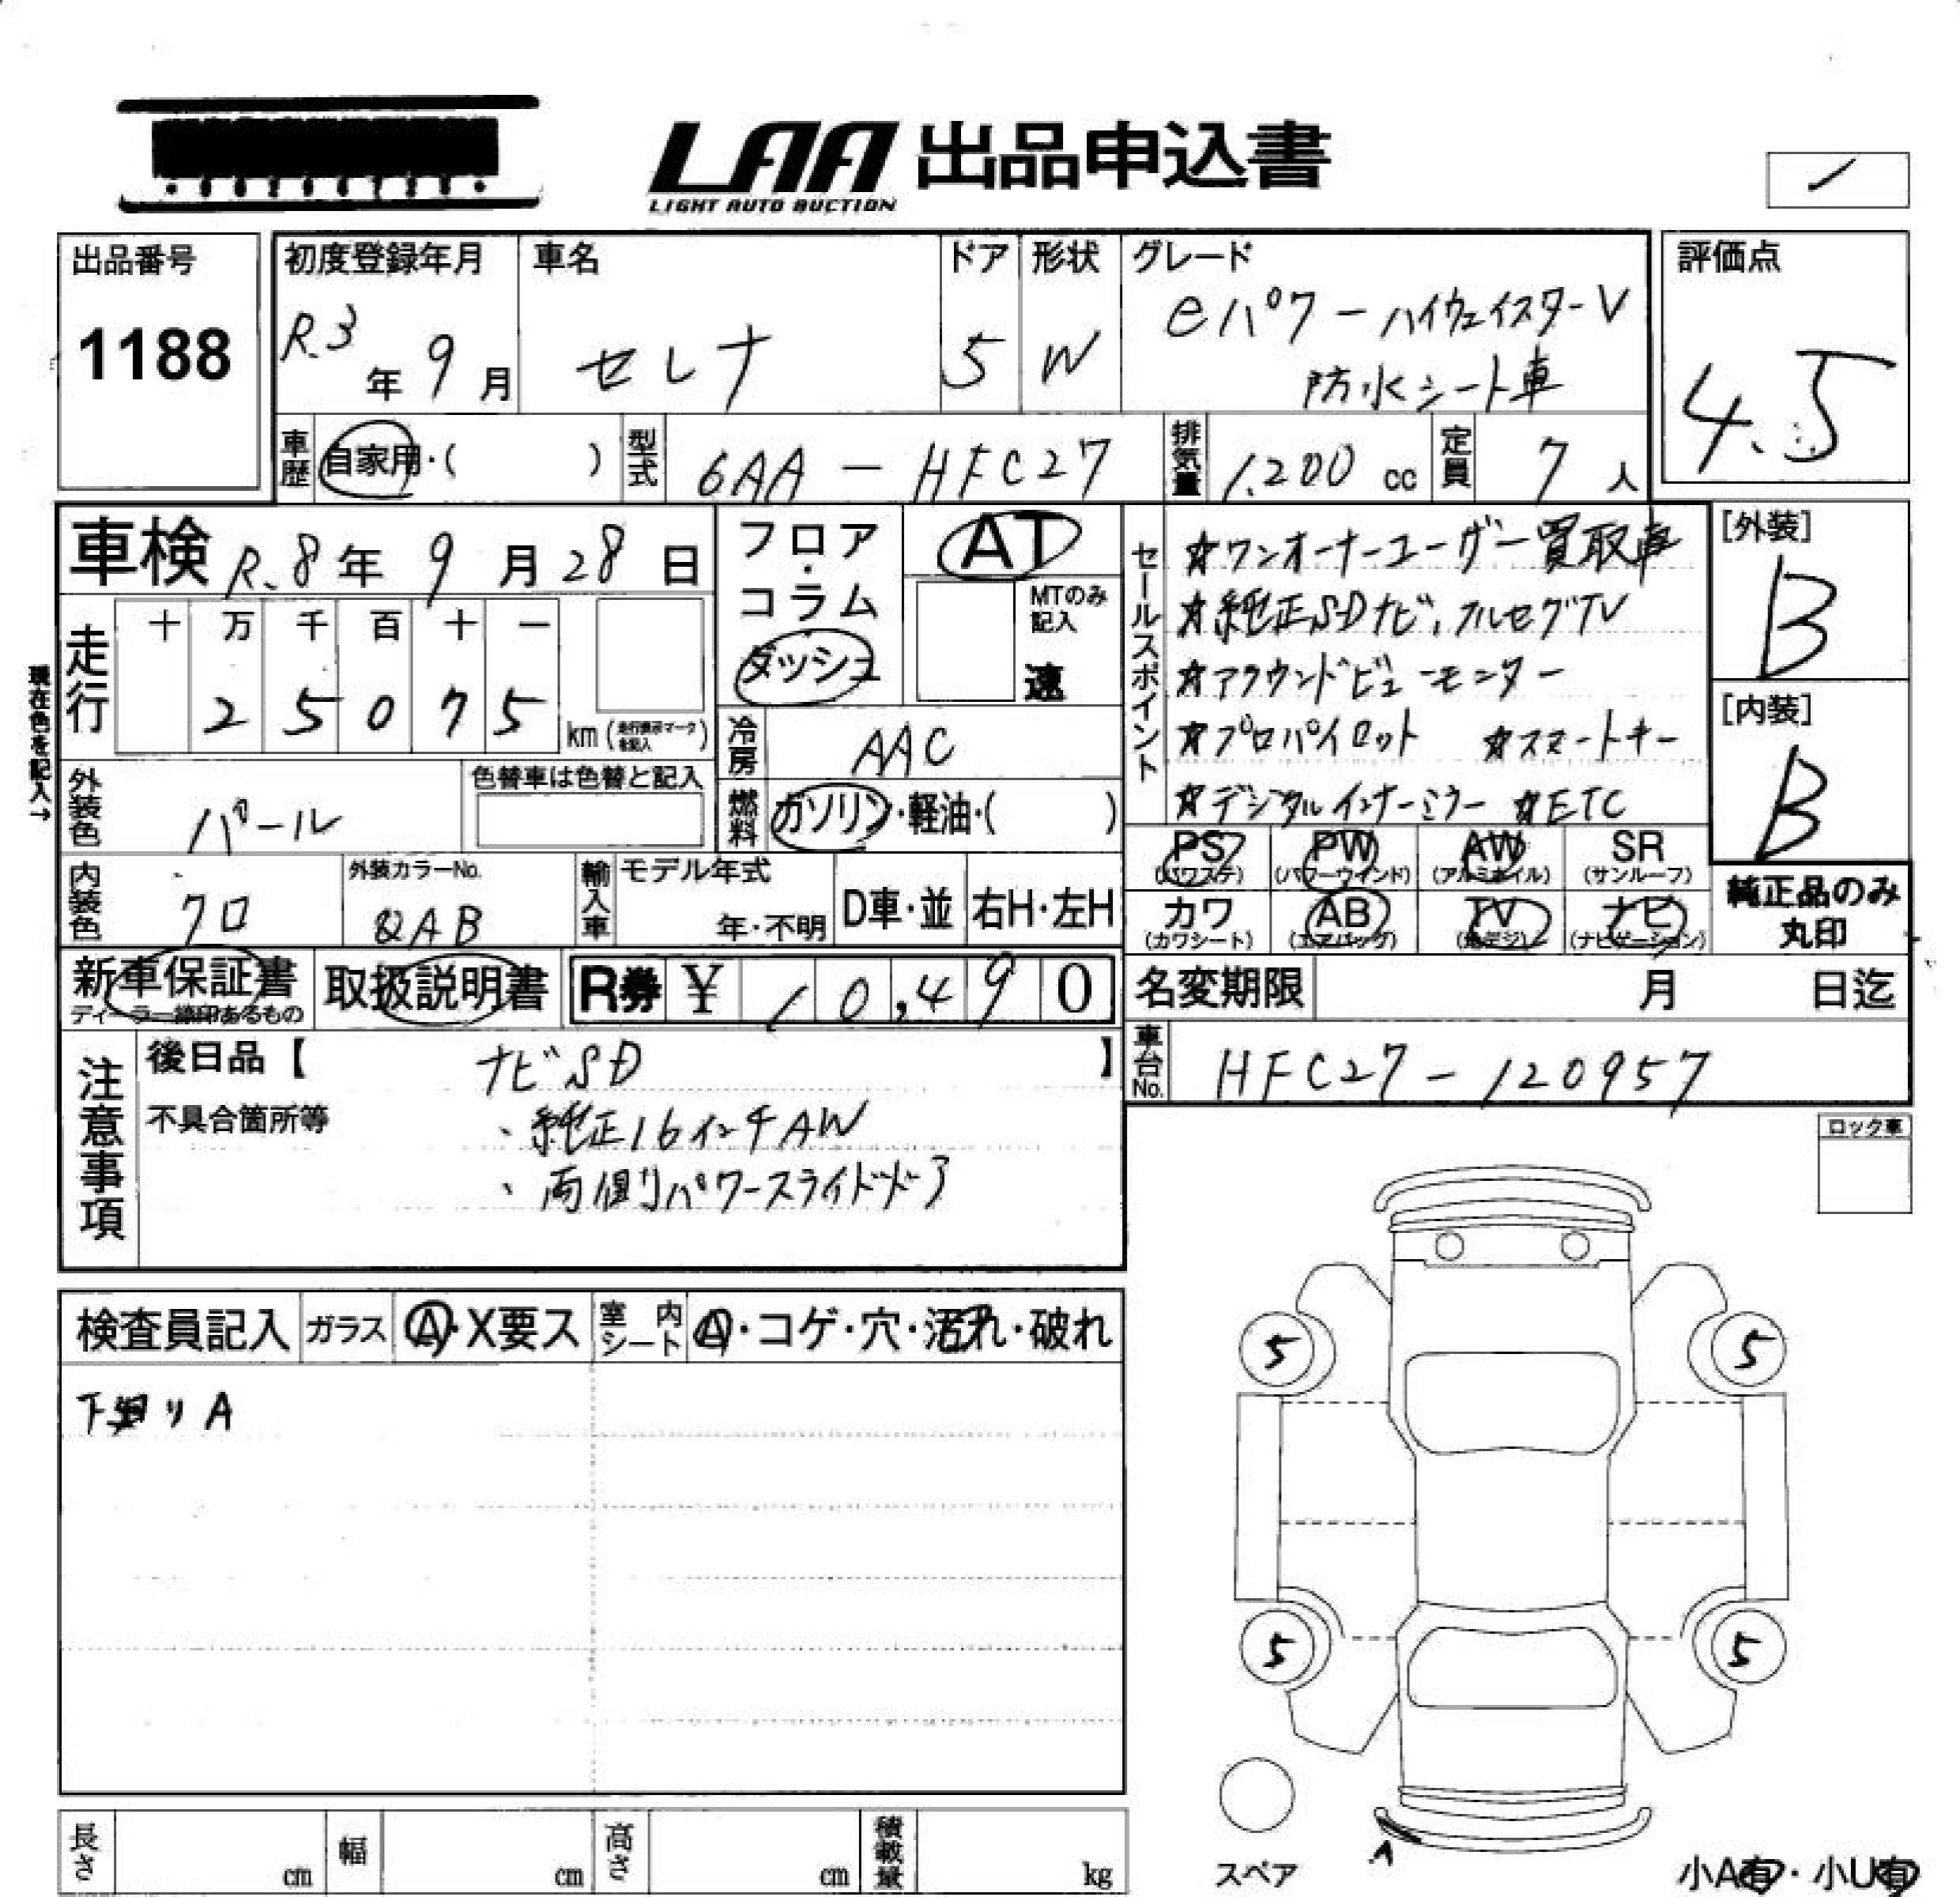 LAA 出品申込書
LIGHT AUTO AUCTION
出品番号
1188
初度登録年月
R.3年9月
車名
セレナ
ドア
5
形状
W
グレード
eパワーハイウェイスターV
防水シート車
評価点
4.5
車歴 自家用・( )
型式 6AA-HFC27
排気量 1.200 cc
定員 7人
車検 R.8年9月28日
フロア・コラム
ダッシュ
AT
MTのみ記入
速
走行
十 万 千 百 十 一
2 5 0 7 5
km (走行表示マークを記入)
現在色を記入→
冷房 AAC
燃料 ガソリン・軽油・( )
外装色 パール
色替車は色替と記入
内装色 クロ
外装カラーNo.
QAB
輸入車
モデル年式
年・不明
D車・並
右H・左H
セールスポイント
☆ワンオーナーユーザー買取車
☆純正SDナビ、フルセグTV
☆アラウンドビューモニター
☆プロパイロット ☆スマートキー
☆デジタルインナーミラー ☆ETC
[外装]
B
[内装]
B
PS (パワステ)
PW (パワーウインド)
AW (アルミホイル)
SR (サンルーフ)
カワ (カワシート)
AB (エアバッグ)
TV (地デジ)
ナビ (ナビゲーション)
純正品のみ
丸印
新車保証書
ディーラー締印あるもの
取扱説明書
R券 ¥ 10,490
名変期限 月 日迄
車台No. HFC27-120957
注意事項
後日品【 ナビSD 】
不具合箇所等
、純正16インチAW
、両側パワースライドドア
ロック車
検査員記入
ガラス A・X要ス
室内シート A・コゲ・穴・汚れ・破れ
下回りA
5
5
5
5
スペア
A
小A有・小U有
長さ cm
幅 cm
高さ cm
積載量 kg